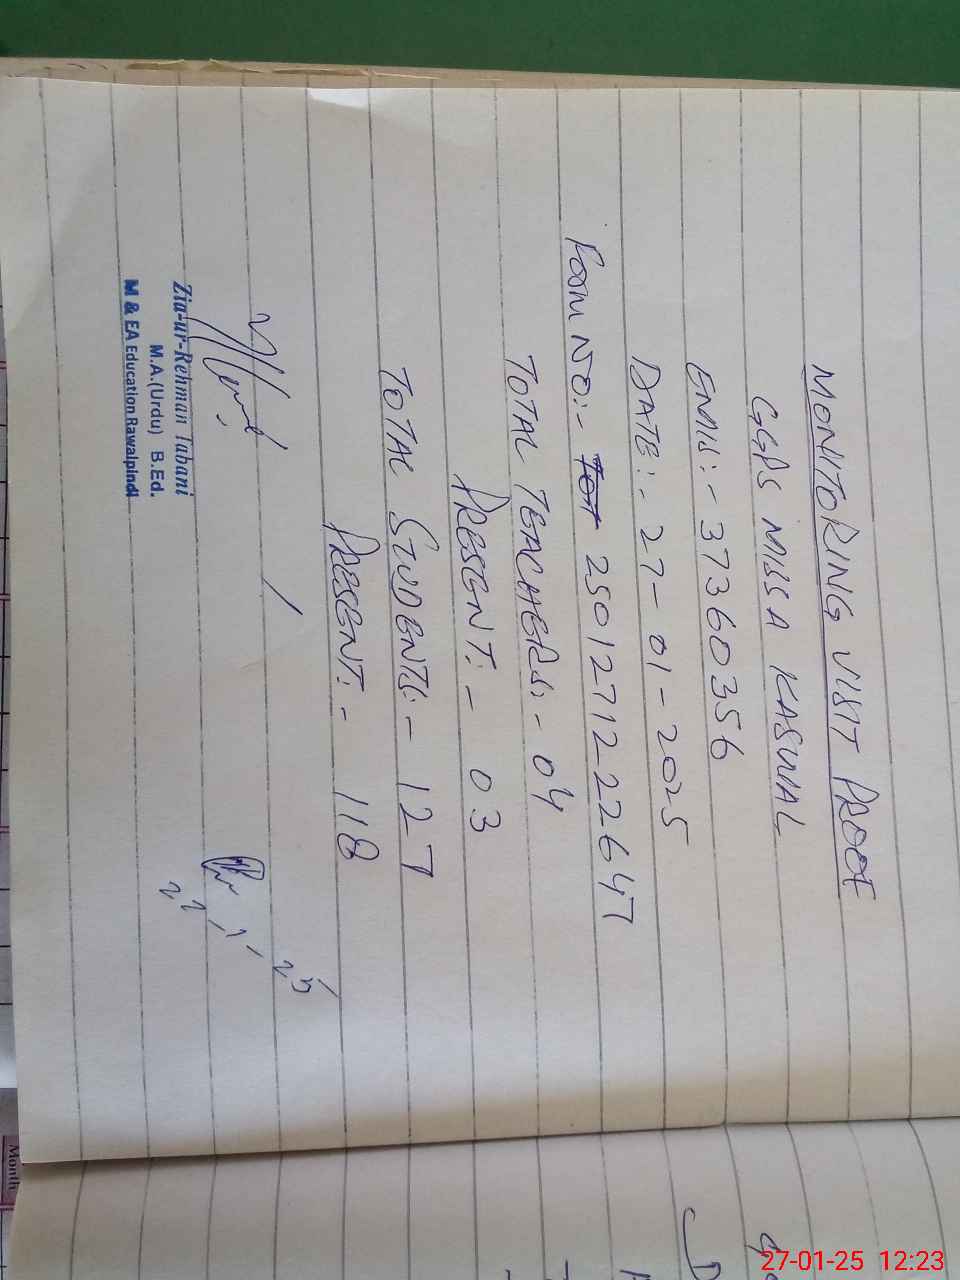 MONITORING VISIT PROOF
GGPS MISSA KASWAL
EMIS:- 37360356
DATE:- 27-01-2025
FORM NO:- 2501271222647
TOTAL TEACHERS:- 04
PRESENT:- 03
TOTAL STUDENTS:- 127
PRESENT:- 118
Zia-ur-Rehman Tabani
M.A.(Urdu) B.Ed.
M & EA Education Rawalpindi
Month
27-01-25 12:23